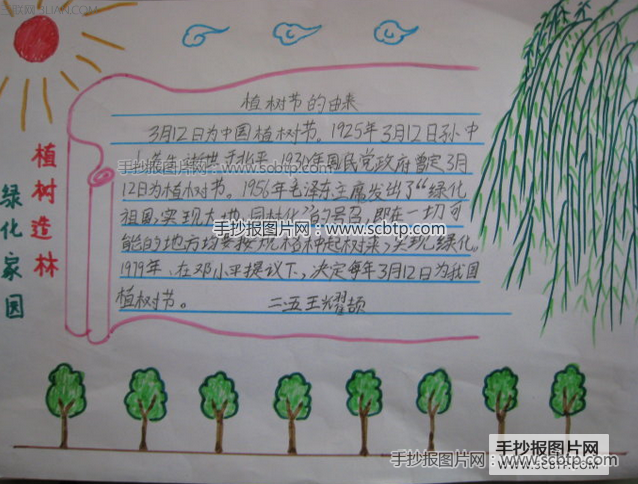 植树造林
绿化家园
植树节的由来
3月12日为中国植树节。1925年3月12日孙中
逝世于北平,1930年国民党政府曾定3月
12日为植树节。1956年毛泽东主席发出了“绿化
祖国,实现大地园林化”的号召,即在一切可
能的地方均要按规格种起树来,实现绿化。
1979年,在邓小平提议下,决定每年3月12日为我国
植树节。 二五王耀颉
手抄报图片网:www.scbtp.com
手抄报图片网:www.scbtp.com
手抄报图片网:www.scbtp.com
手抄报图片网
www.scbtp.com